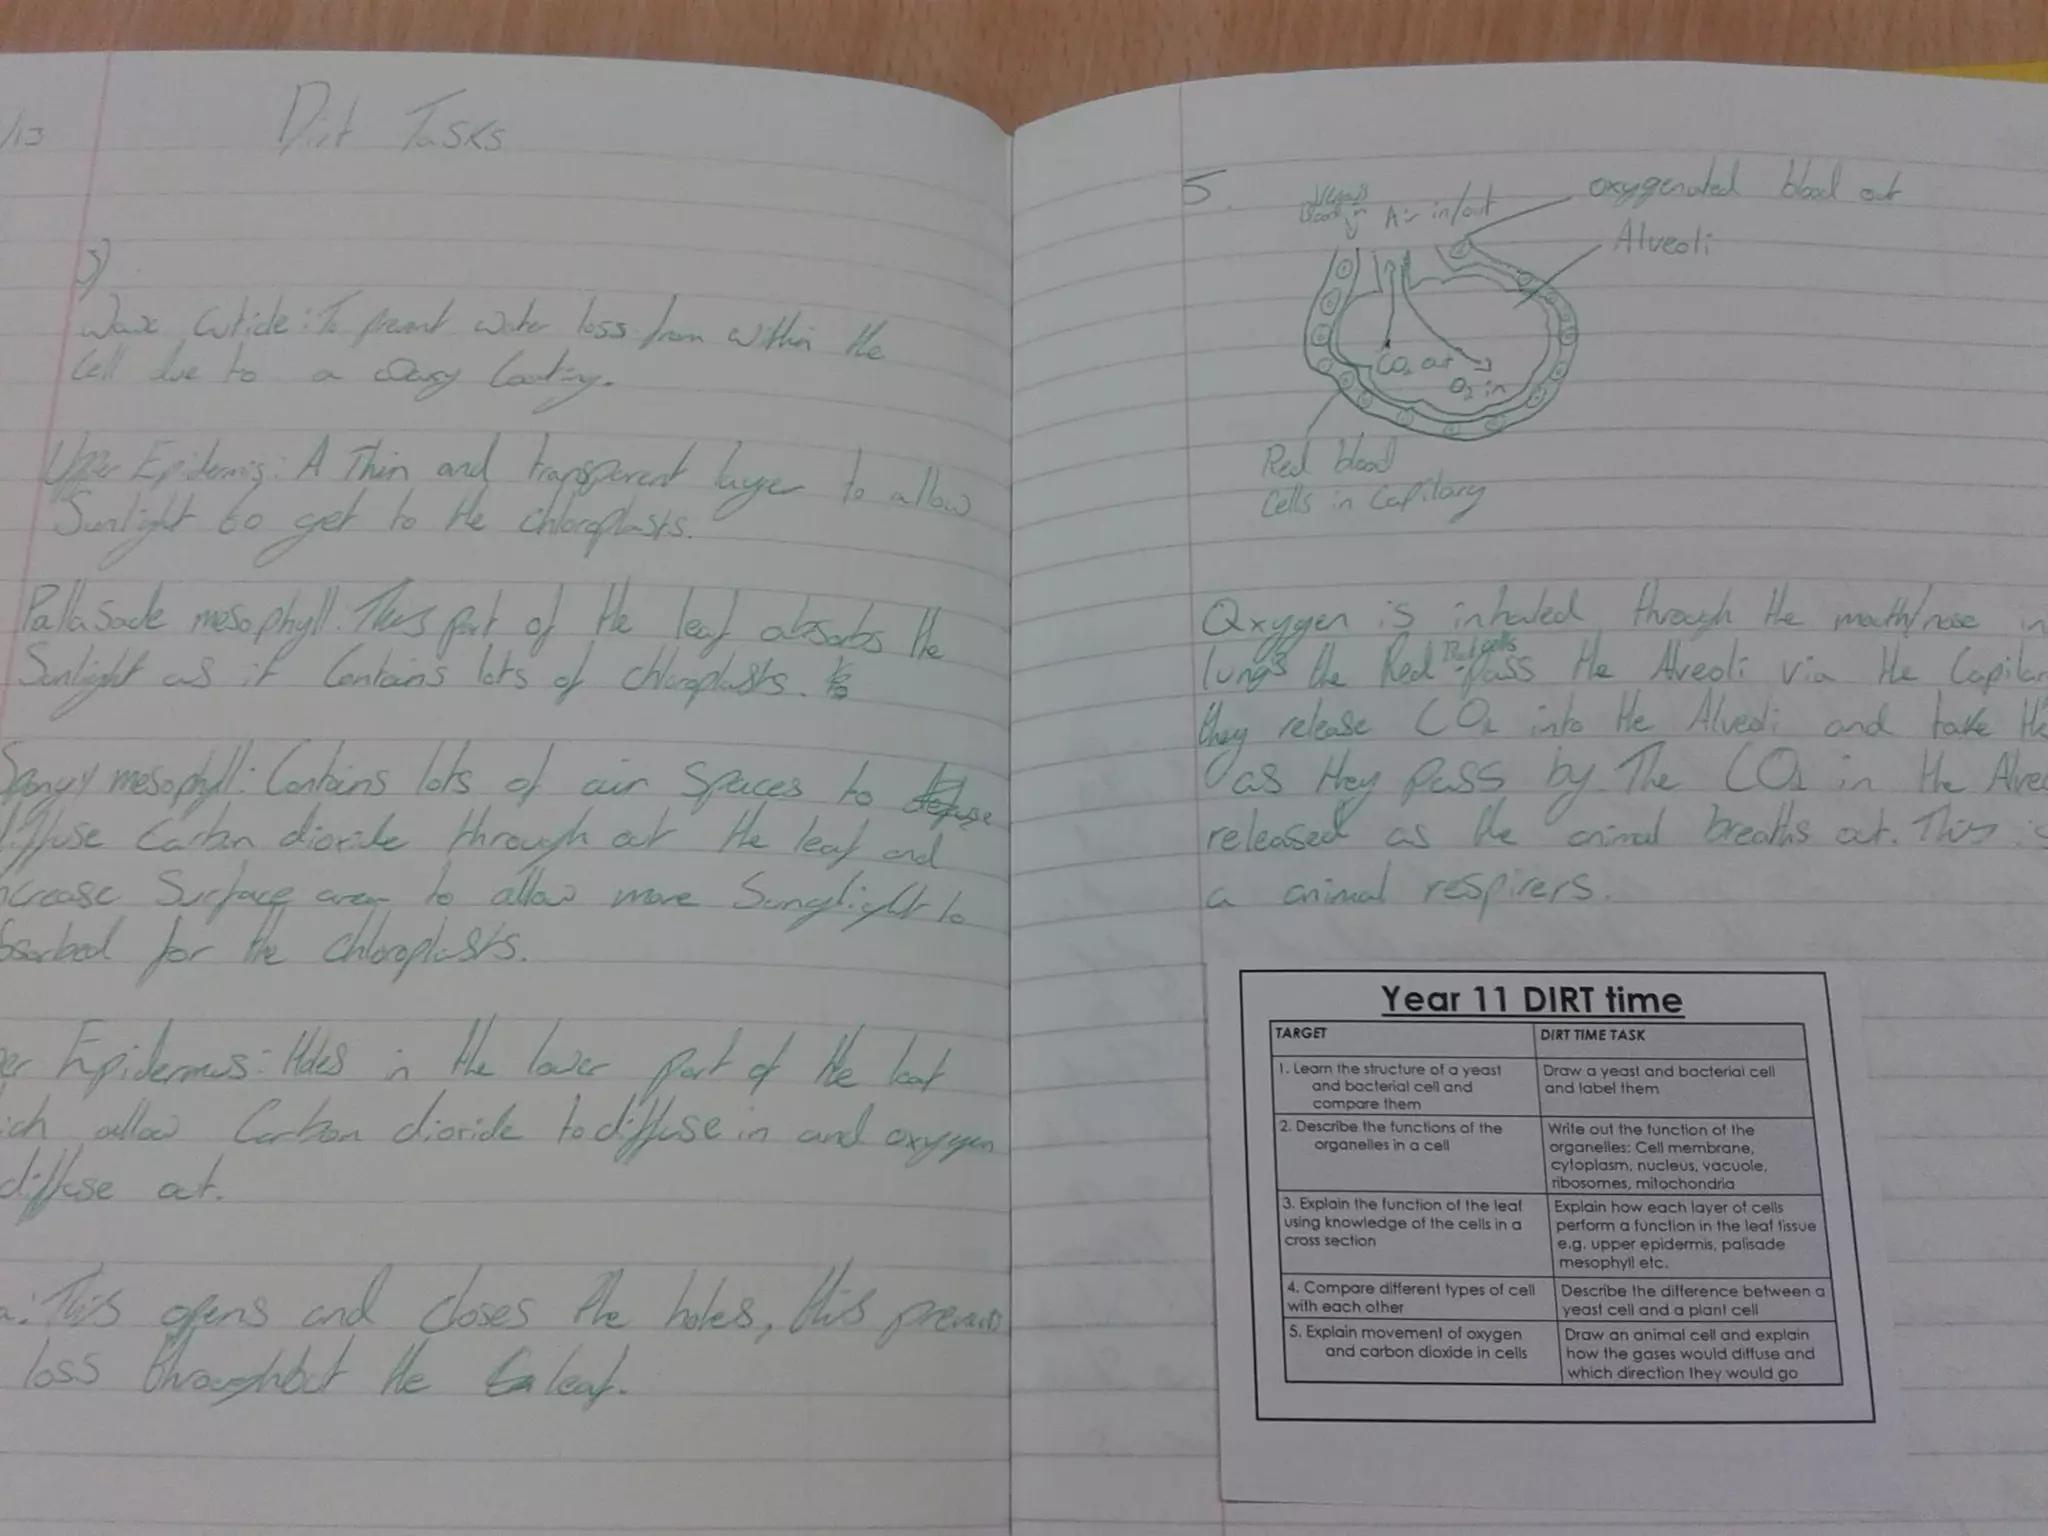 /13
Dirt Tasks
3)
Wax Cuticle: To prevent water loss from within the
Cell due to a waxy Coating.
Upper Epidermis: A Thin and transparent layer to allow
Sunlight to get to the chloroplasts.
Pallasade mesophyll: This part of the leaf absorbs the
Sunlight as it Contains lots of chloroplasts.
Spongy mesophyll: Contains lots of air Spaces to
diffuse Carbon dioxide through out the leaf and
ncrease Surface area to allow more Sunglight to
bsorbed for the chloroplasts.
er Epidermus: Holes in the lower part of the leaf
ich allow Carbon dioxide to diffuse in and oxygen
diffuse out.
a: This opens and closes the holes, this prevents
loss throughout the leaf.
5.
Blood in
Air in/out
oxygenated blood out
Alveoli
CO2 out
O2 in
Red blood
Cells in Capilary
Oxygen is inhaled through the mouth/nose in
lungs the Red Blood cells pass the Alveoli via the Capilar
they release CO2 into the Alveoli and take th
as they pass by. The CO2 in the Alveo
released as the animal breaths out. This is
a animal respirers.
Year 11 DIRT time
TARGET
DIRT TIME TASK
1. Learn the structure of a yeast
and bacterial cell and
compare them
Draw a yeast and bacterial cell
and label them
2. Describe the functions of the
organelles in a cell
Write out the function of the
organelles: Cell membrane,
cytoplasm, nucleus, vacuole,
ribosomes, mitochondria
3. Explain the function of the leaf
using knowledge of the cells in a
cross section
Explain how each layer of cells
perform a function in the leaf tissue
e.g. upper epidermis, palisade
mesophyll etc.
4. Compare different types of cell
with each other
Describe the difference between a
yeast cell and a plant cell
5. Explain movement of oxygen
and carbon dioxide in cells
Draw an animal cell and explain
how the gases would diffuse and
which direction they would go